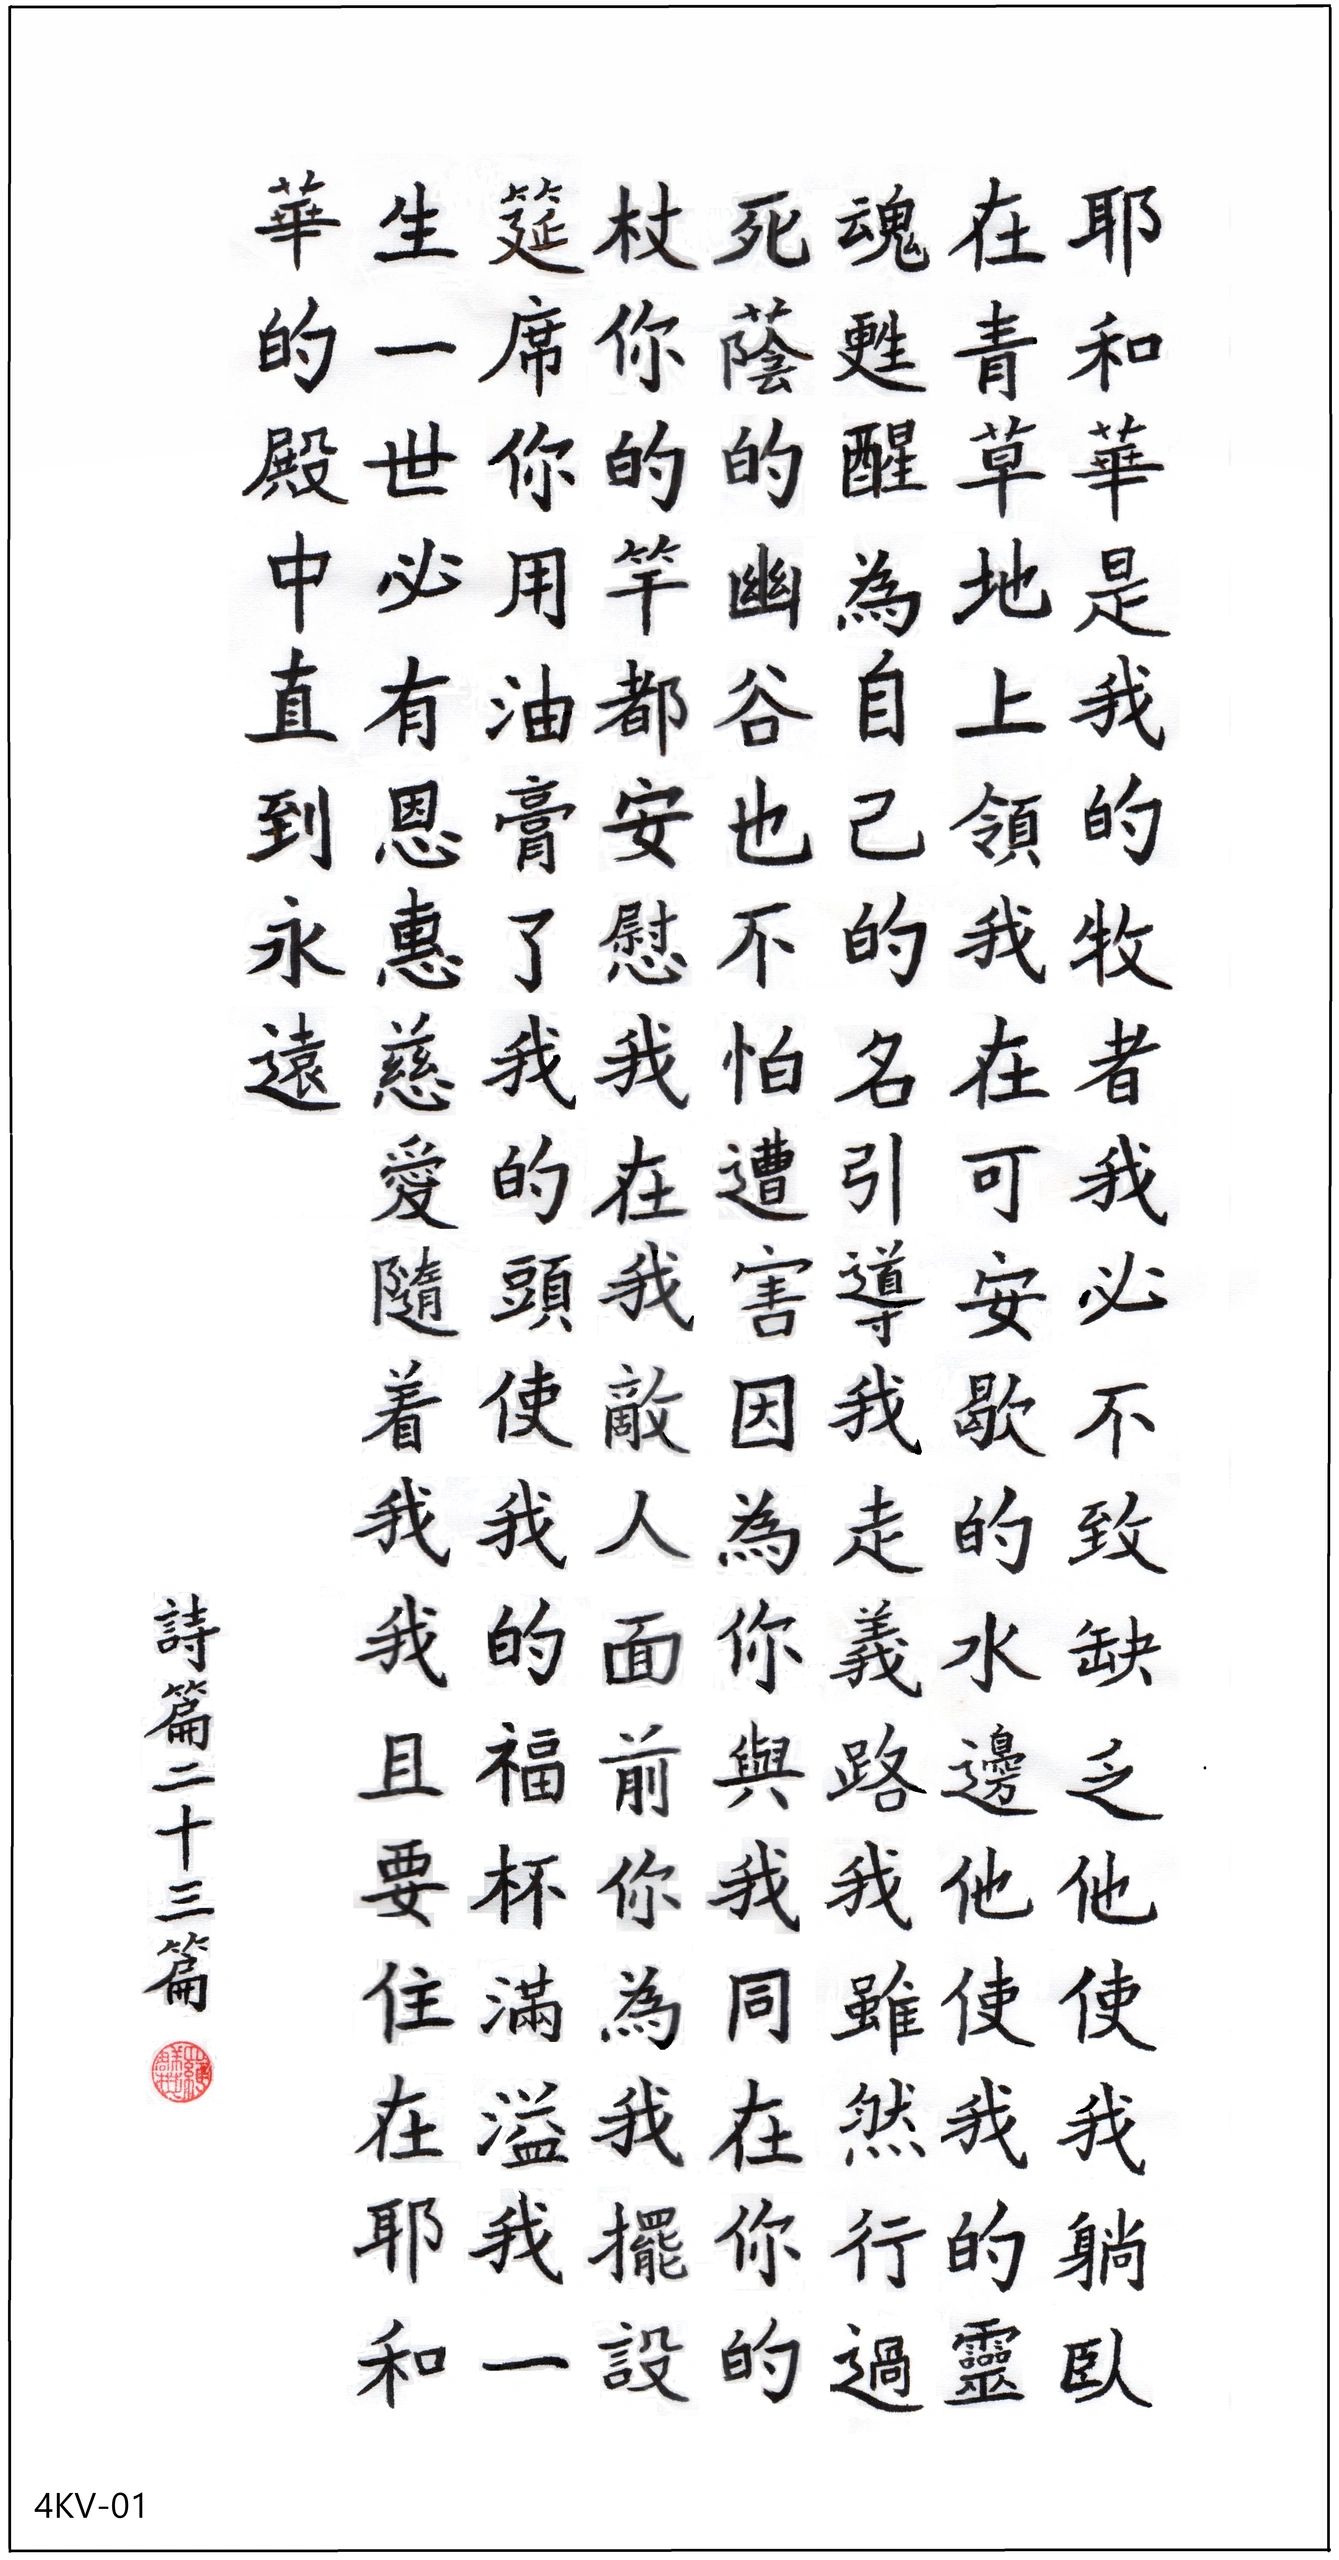 耶和華是我的牧者我必不致缺乏他使我躺臥
在青草地上領我在可安歇的水邊他使我的靈
魂甦醒為自己的名引導我走義路我雖然行過
死蔭的幽谷也不怕遭害因為你與我同在你的
杖你的竿都安慰我在我敵人面前你為我擺設
筵席你用油膏了我的頭使我的福杯滿溢我一
生一世必有恩惠慈愛隨着我我且要住在耶和
華的殿中直到永遠
詩篇二十三篇
4KV-01